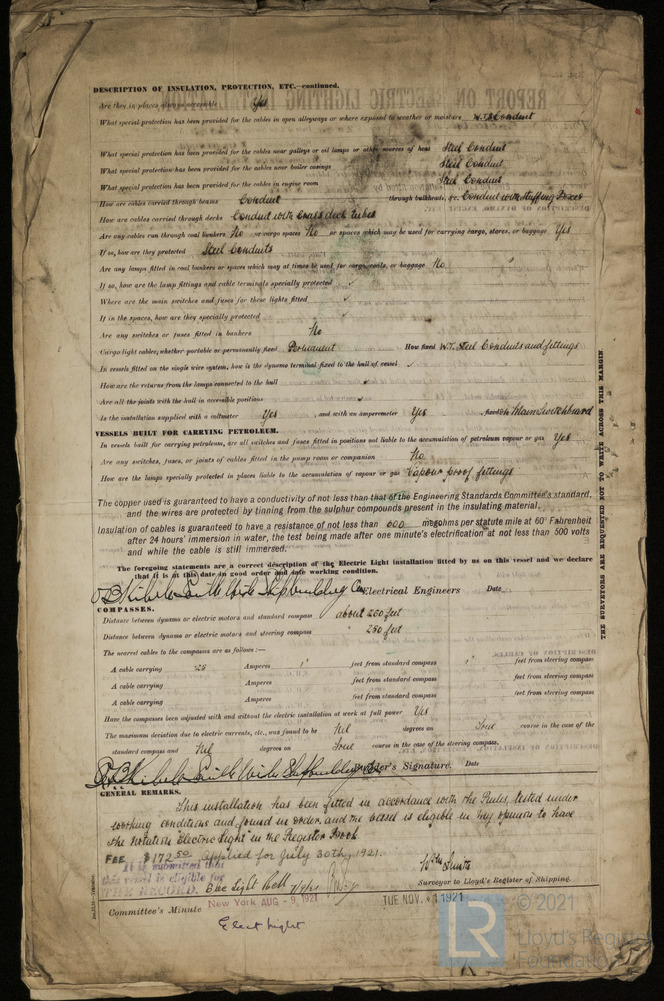 DESCRIPTION OF INSULATION, PROTECTION, ETC.—continued.
Are they in places always accessible Yes
What special protection has been provided for the cables in open alleyways or where exposed to weather or moisture W.T. Conduit
What special protection has been provided for the cables near galleys or oil lamps or other sources of heat Steel Conduit
What special protection has been provided for the cables near boiler casings Steel Conduit
What special protection has been provided for the cables in engine room Steel Conduit
How are cables carried through beams Conduit through bulkheads, &c. Conduit with stuffing Boxes
How are cables carried through decks Conduit with brass deck tubes
Are any cables run through coal bunkers No or cargo spaces No or spaces which may be used for carrying cargo, stores, or baggage Yes
If so, how are they protected Steel Conduits
Are any lamps fitted in coal bunkers or spaces which may at times be used for cargo, coals, or baggage No
If so, how are the lamp fittings and cable terminals specially protected ✓
Where are the main switches and fuses for these lights fitted ✓
If in the spaces, how are they specially protected ✓
Are any switches or fuses fitted in bunkers No
Cargo light cables, whether portable or permanently fixed Permanent How fixed W.T. Steel Conduits and fittings
In vessels fitted on the single wire system, how is the dynamo terminal fixed to the hull of vessel ✓
How are the returns from the lamps connected to the hull ✓
Are all the joints with the hull in accessible positions ✓
Is the installation supplied with a voltmeter Yes , and with an amperemeter Yes , fixed On Main Switchboard
VESSELS BUILT FOR CARRYING PETROLEUM.
In vessels built for carrying petroleum, are all switches and fuses fitted in positions not liable to the accumulation of petroleum vapour or gas Yes
Are any switches, fuses, or joints of cables fitted in the pump room or companion No
How are the lamps specially protected in places liable to the accumulation of vapour or gas Vapour proof fittings
The copper used is guaranteed to have a conductivity of not less than that of the Engineering Standards Committee's standard,
and the wires are protected by tinning from the sulphur compounds present in the insulating material.
Insulation of cables is guaranteed to have a resistance of not less than 600 megohms per statute mile at 60° Fahrenheit
after 24 hours' immersion in water, the test being made after one minute's electrification at not less than 500 volts
and while the cable is still immersed.
The foregoing statements are a correct description of the Electric Light installation fitted by us on this vessel and we declare
that it is at this date in good order and safe working condition.
Shipbuilding Electrical Engineers Date
COMPASSES.
Distance between dynamo or electric motors and standard compass about 260 feet
Distance between dynamo or electric motors and steering compass 250 feet
The nearest cables to the compasses are as follows:—
A cable carrying Amperes feet from standard compass feet from steering compass
A cable carrying Amperes feet from standard compass feet from steering compass
A cable carrying Amperes feet from standard compass feet from steering compass
Have the compasses been adjusted with and without the electric installation at work at full power Yes
The maximum deviation due to electric currents, etc., was found to be Nil degrees on True course in the case of the
standard compass and Nil degrees on True course in the case of the steering compass.
Shipbuilding Builder's Signature. Date
GENERAL REMARKS.
This installation has been fitted in accordance with the Rules, tested under
working conditions and found in order and the vessel is eligible in my opinion to have
the notation "Electric Light" in the Register Book
FEE $172.50 applied for July 30th, 1921.
It is submitted that
this vessel is eligible for
THE RECORD.
Surveyor to Lloyd's Register of Shipping.
Committee's Minute New York AUG - 9. 1921 TUE NOV. 1 1921
Elect Light
THE SURVEYORS ARE REQUESTED NOT TO WRITE ACROSS THIS MARGIN
LR
© 2021
Lloyd's Register
Foundation